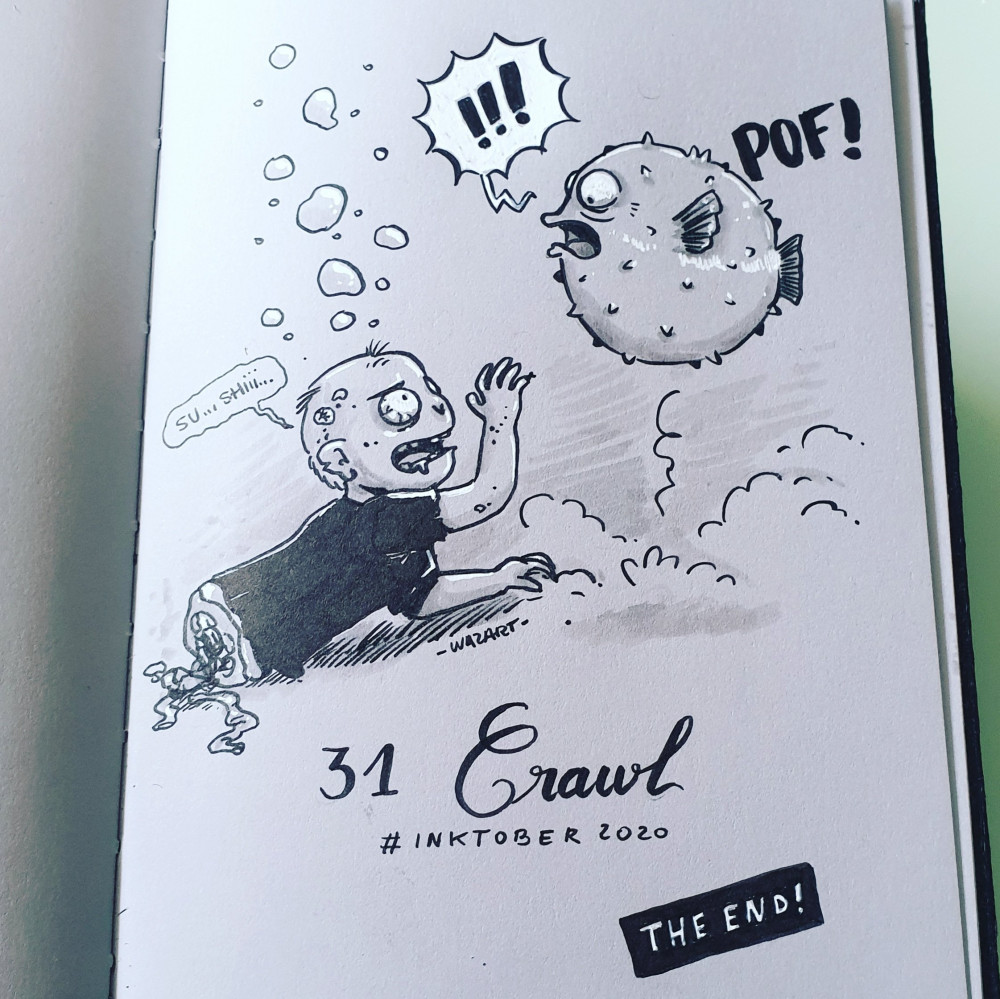 !!!
POF!
SU... SHiii...
-WAZART-
31 Crawl
#INKTOBER 2020
THE END!